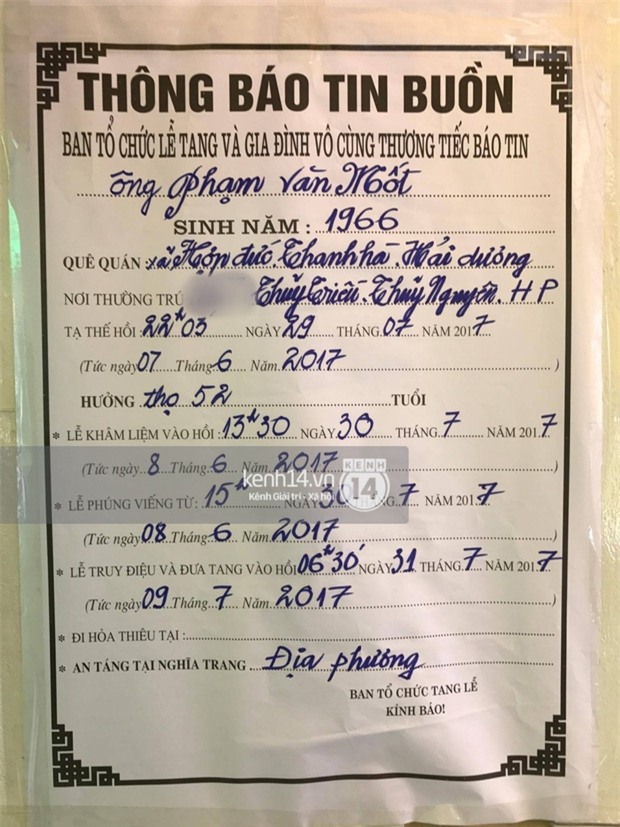 THÔNG BÁO TIN BUỒN
BAN TỔ CHỨC LỄ TANG VÀ GIA ĐÌNH VÔ CÙNG THƯƠNG TIẾC BÁO TIN
ông Phạm Văn Mốt
SINH NĂM : 1966
QUÊ QUÁN : xã Hợp đức. Thanh hà. Hải dương
NƠI THƯỜNG TRÚ Thuỷ Triều. Thuỷ Nguyên. HP
TẠ THẾ HỒI : 22h03 NGÀY 29 THÁNG 07 NĂM 2017
(Tức ngày 07 Tháng 6 Năm 2017)
HƯỞNG thọ 52 TUỔI
* LỄ KHÂM LIỆM VÀO HỒI : 13h30 NGÀY 30 THÁNG 7 NĂM 2017
(Tức ngày 8 Tháng 6 Năm 2017
kenh14.vn
Kênh Giải trí - Xã hội
KENH 14
* LỄ PHÚNG VIẾNG TỪ : 15h NGÀY 30 THÁNG 7 NĂM 2017
(Tức ngày 08 Tháng 6 Năm 2017)
* LỄ TRUY ĐIỆU VÀ ĐƯA TANG VÀO HỒI 06h30' NGÀY 31 THÁNG 7 NĂM 2017
(Tức ngày 09 Tháng 7 Năm 2017)
* ĐI HỎA THIÊU TẠI :
* AN TÁNG TẠI NGHĨA TRANG Địa phương
BAN TỔ CHỨC TANG LỄ
KÍNH BÁO!